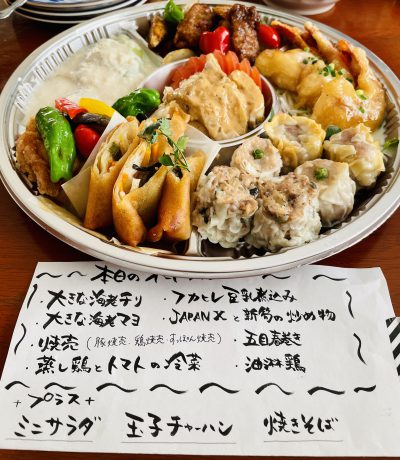 本日の
・大きな海老チリ ・フカヒレ豆乳煮込み
・大きな海老マヨ ・JAPAN Xと新筍の炒め物
・焼売（豚焼売・鶏焼売・すっぽん焼売） ・五目春巻き
・蒸し鶏とトマトの冷菜 ・油淋鶏
+プラス+
ミニサラダ 玉子チャーハン 焼きそば